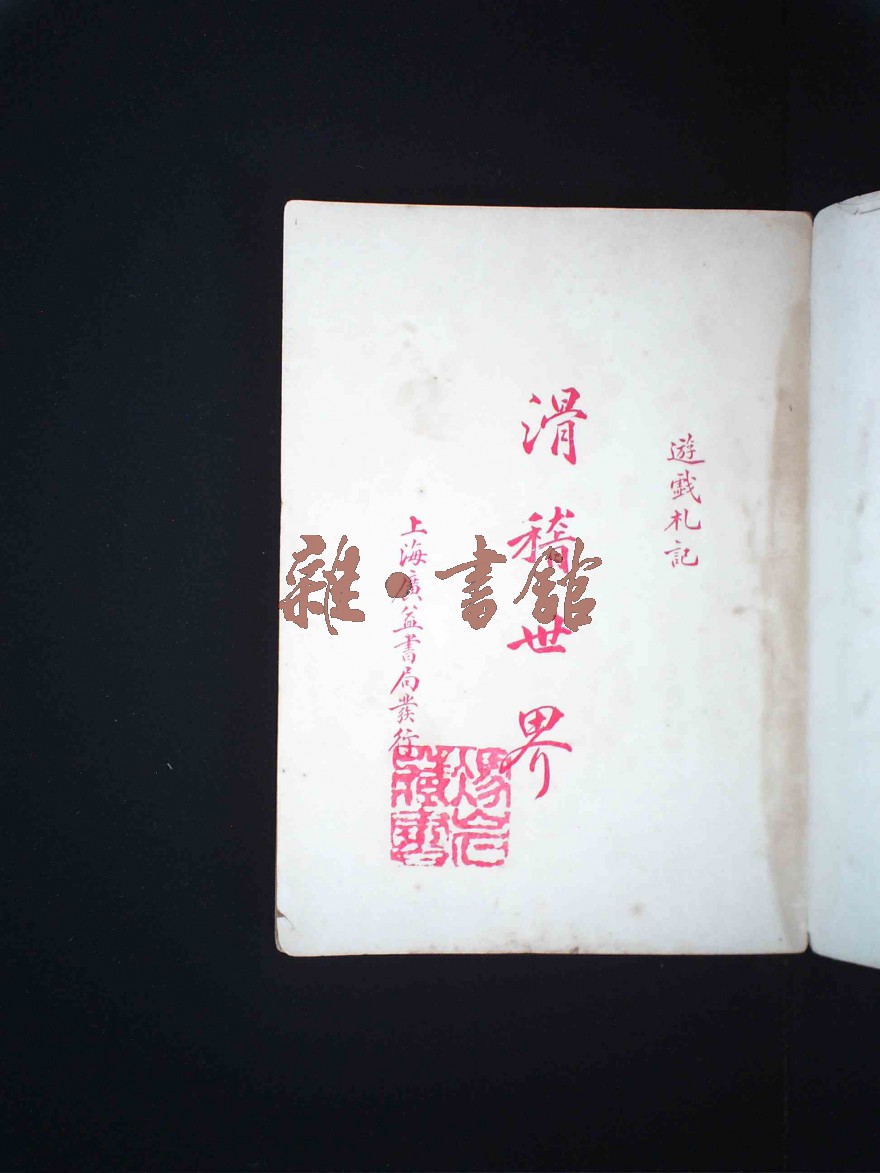 遊戲札記
滑稽世界
上海廣益書局發行
雜·書館
藏書